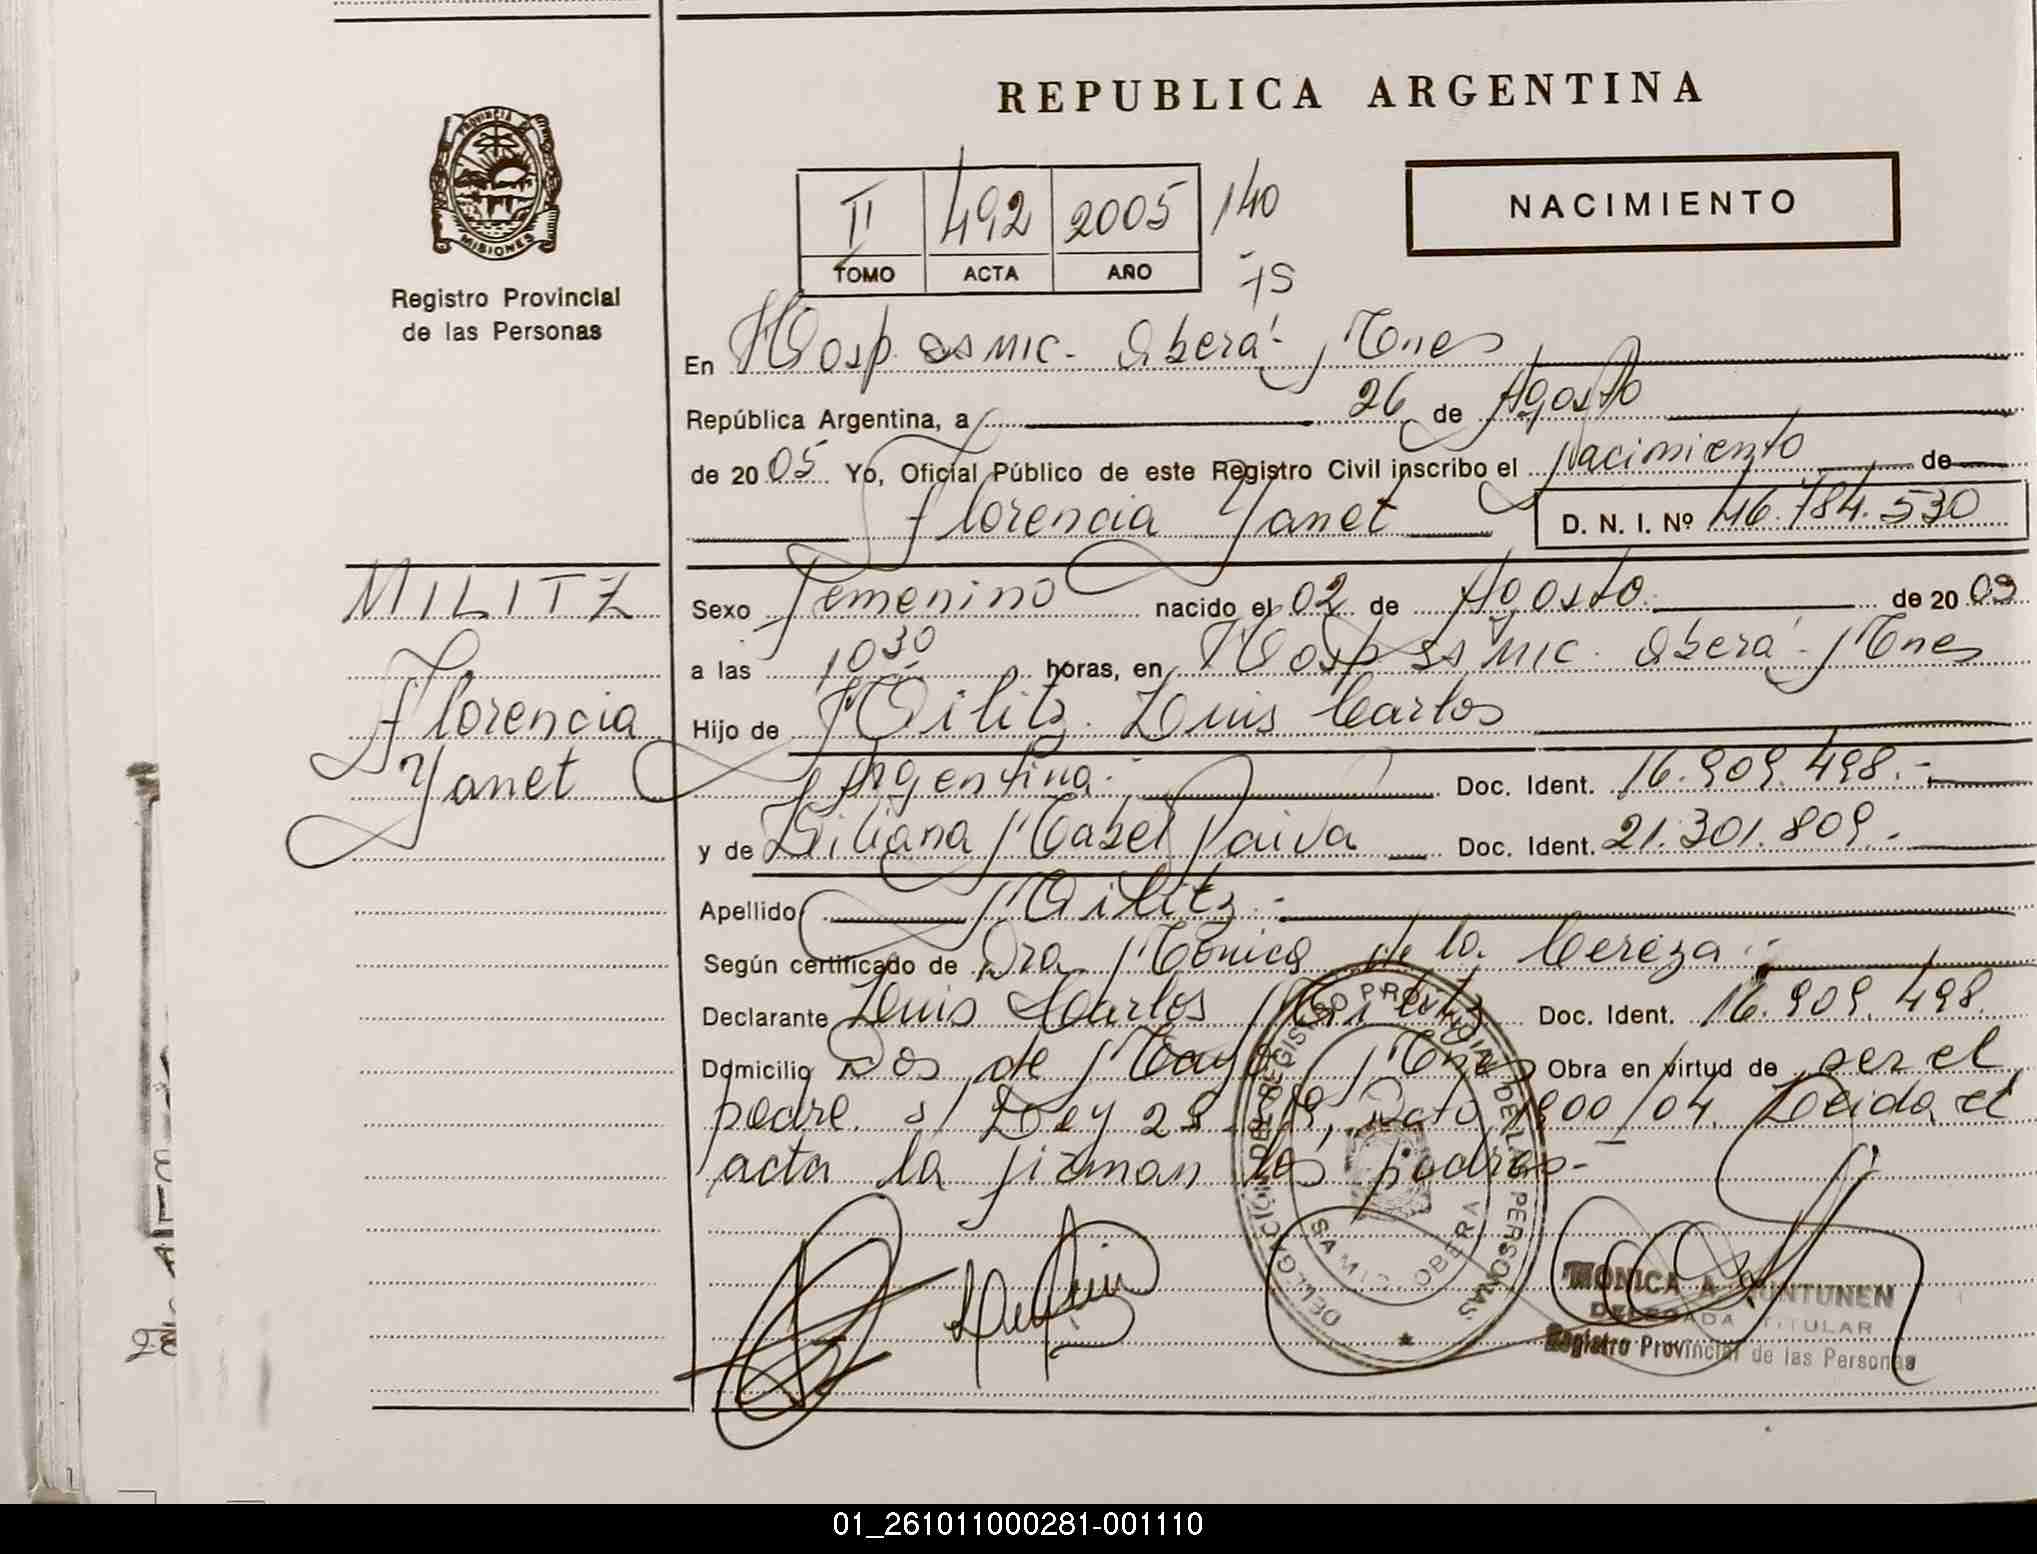 REPUBLICA ARGENTINA
PROVINCIA DE
MISIONES
Registro Provincial
de las Personas
II 492 2005 140
TOMO ACTA AÑO 75
NACIMIENTO
En Hosp. ssmic. Oberá - Mnes
República Argentina, a 26 de Agosto
de 2005 Yo, Oficial Público de este Registro Civil inscribo el Nacimiento de
Florencia Yanet D. N. I. Nº 46.784.530
MILITZ
Florencia
Yanet
Sexo Femenino nacido el 02 de Agosto de 2005
a las 10 30 horas, en Hosp ss mic. Oberá - Mnes
Hijo de Militz Luis Carlos
Argentina.- Doc. Ident. 16.909.498.-
y de Liliana Mabel Paiva Doc. Ident. 21.301.809.-
Apellido Militz.-
Según certificado de Dra Mónica de la Cereza.-
Declarante Luis Carlos Militz Doc. Ident. 16.909.498.
Domicilio Dos de Mayo Mnes Obra en virtud de ser el
padre. s/ Ley 1900/04. Leida el
acta la firman los padres.-
DELEGACIÓN DEL REGISTRO PROVINCIAL DE LAS PERSONAS
SAMIC OBERA
MONICA A. HUNTUNEN
DELEGADA TITULAR
Registro Provincial de las Personas
01_261011000281-001110